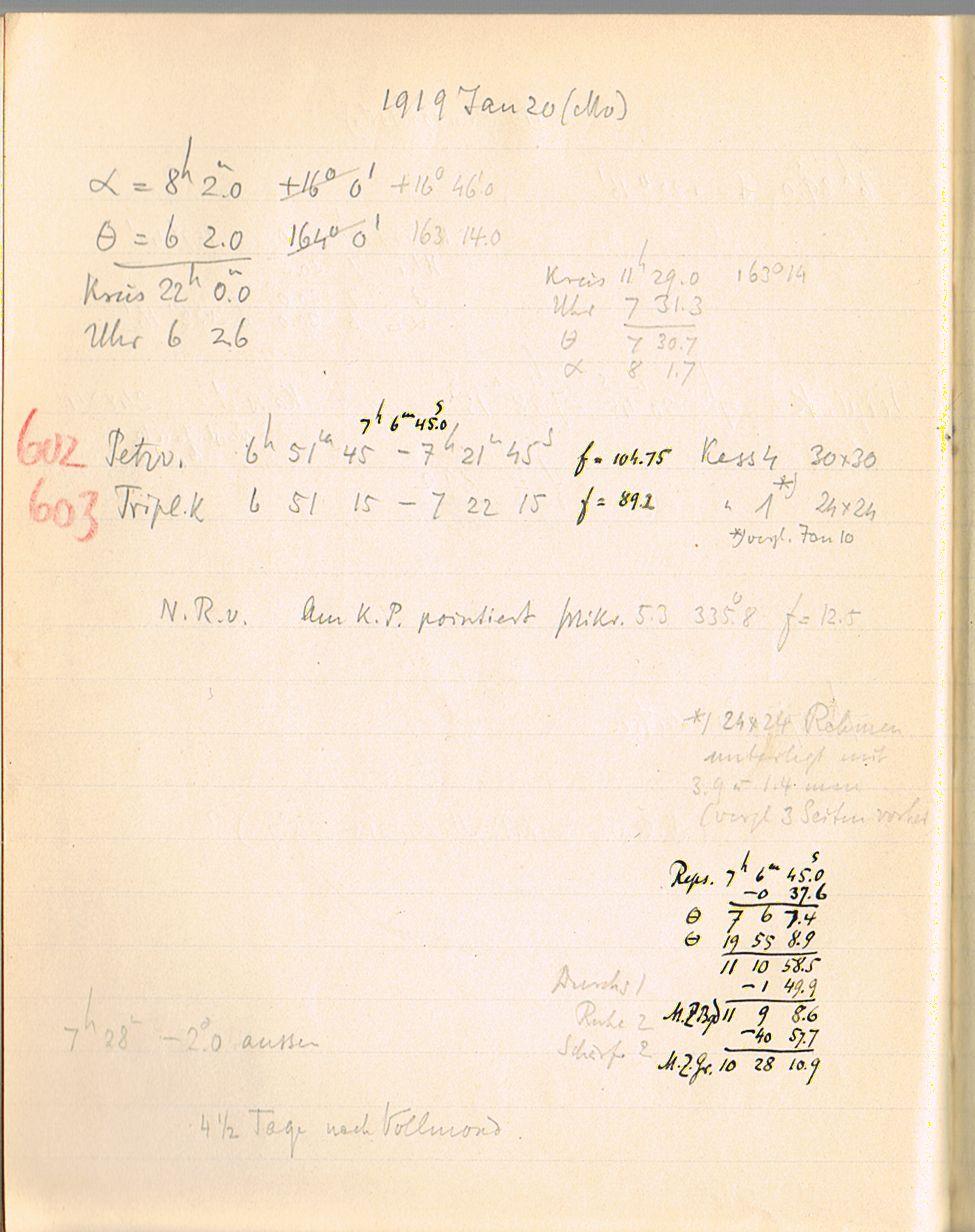 1919 Jan 20 (Mo)
α = 8h 2m.0 +16° 0' +16° 46'.0
θ = 6 2.0 164° 0' 163 14.0
Kreis 22h 0m.0
Uhr 6 2.6
Kreis 11h 29.0 163°14
Uhr 7 31.3
θ 7 30.7
α 8 1.7
7h 6m 45.0s
602 Petzv. 6h 51m 45 – 7h 21m 45s f = 104.75 Kass 4 30×30
603 Tripl.K 6 51 15 – 7 22 15 f = 89.2 " 1 *) 24×24
*) vergl. Jan 10
N.R.v. Am K.P. pointiert Mikr. 5.3 335°.8 f = 12.5
*) 24×24 Rahmen
unterlegt mit
3.9 – 1.4 mm
(vergl 3 Seiten vorher
Reps. 7h 6m 45.0s
–0 37.6
θ 7 6 7.4
θ 19 55 8.9
11 10 58.5
–1 49.9
M.Z.Bgd 11 9 8.6
–40 57.7
M.Z.Gr. 10 28 10.9
Durchs 1
Ruhe 2
Schärfe 2
7h 28m –2°.0 aussen
4 1/2 Tage nach Vollmond